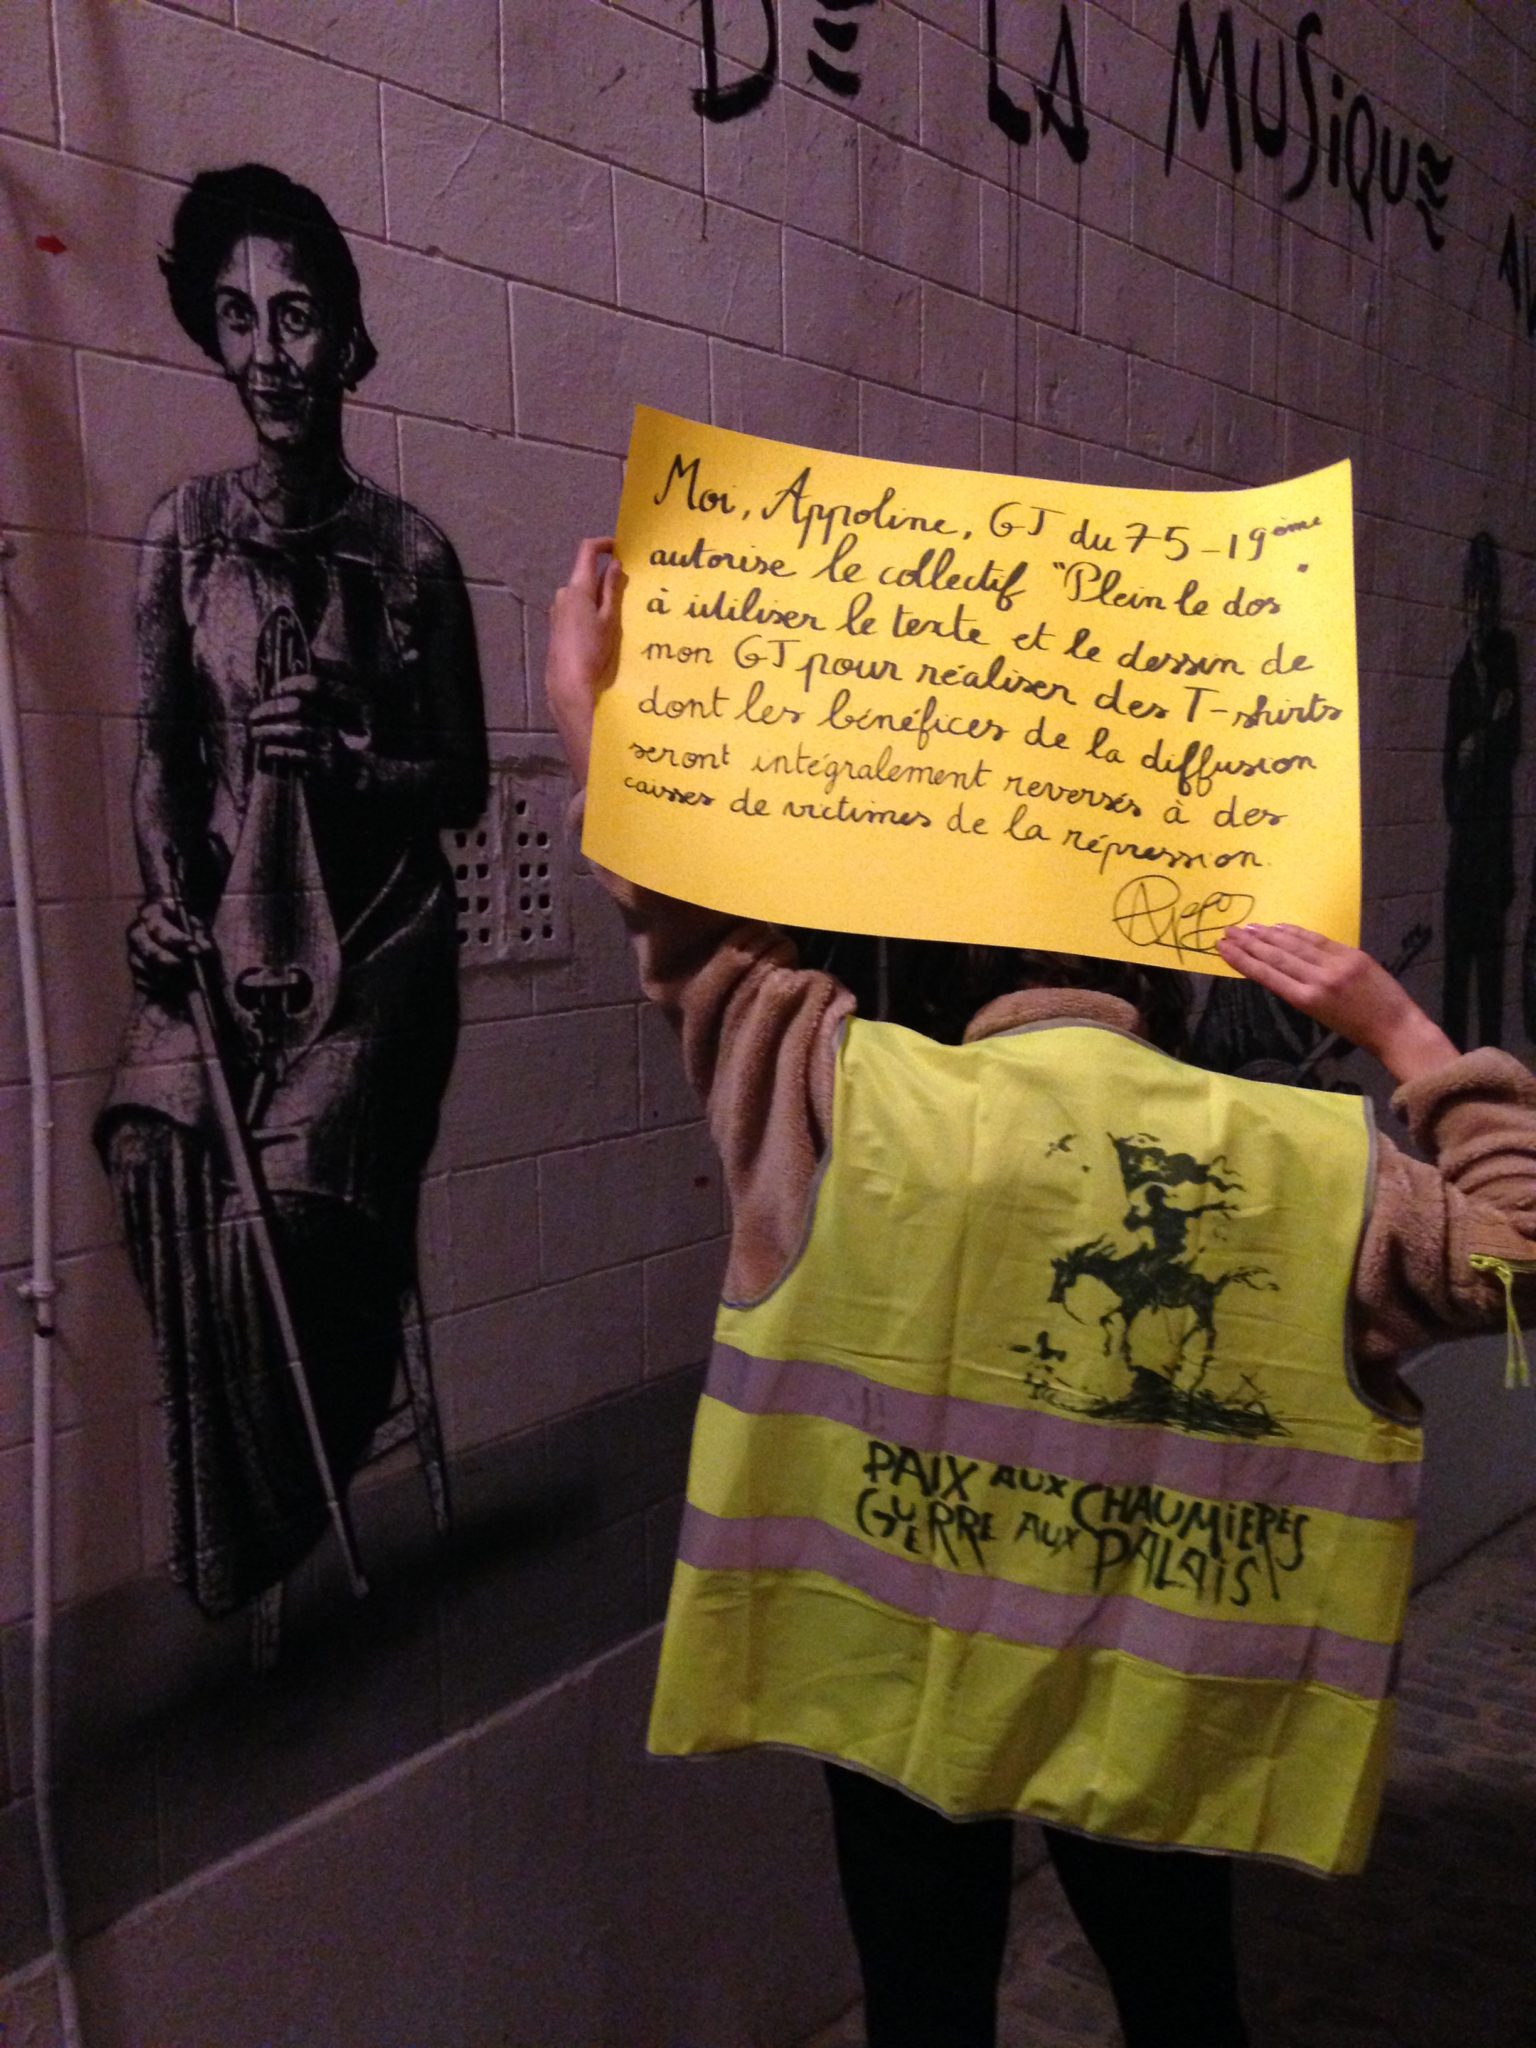 DE LA MUSIQUE
Moi, Appoline, GJ du 75-19ème
autorise le collectif "Plein le dos"
à utiliser le texte et le dessin de
mon GJ pour réaliser des T-shirts
dont les bénéfices de la diffusion
seront intégralement reversés à des
caisses de victimes de la répression.
PAIX AUX CHAUMIERES
GUERRE AUX PALAIS